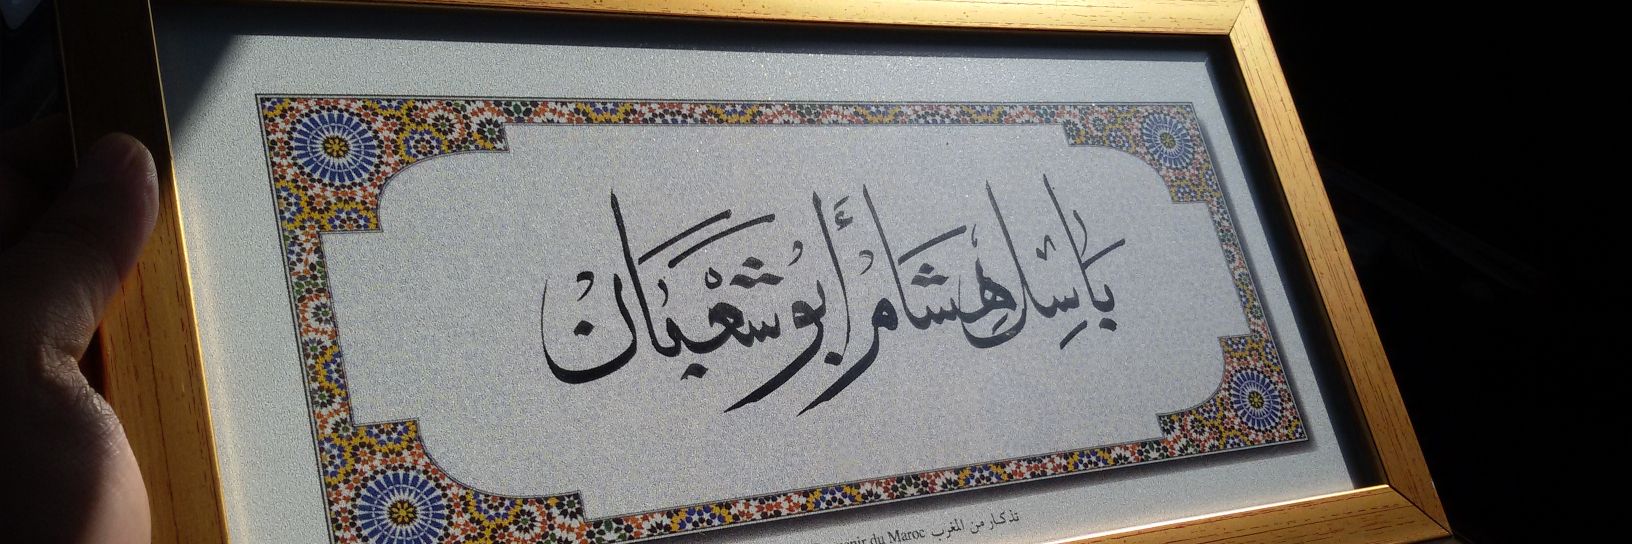 بَاسِل هِشَام أَبُو شَعْبَان
du Maroc تذكار من المغرب